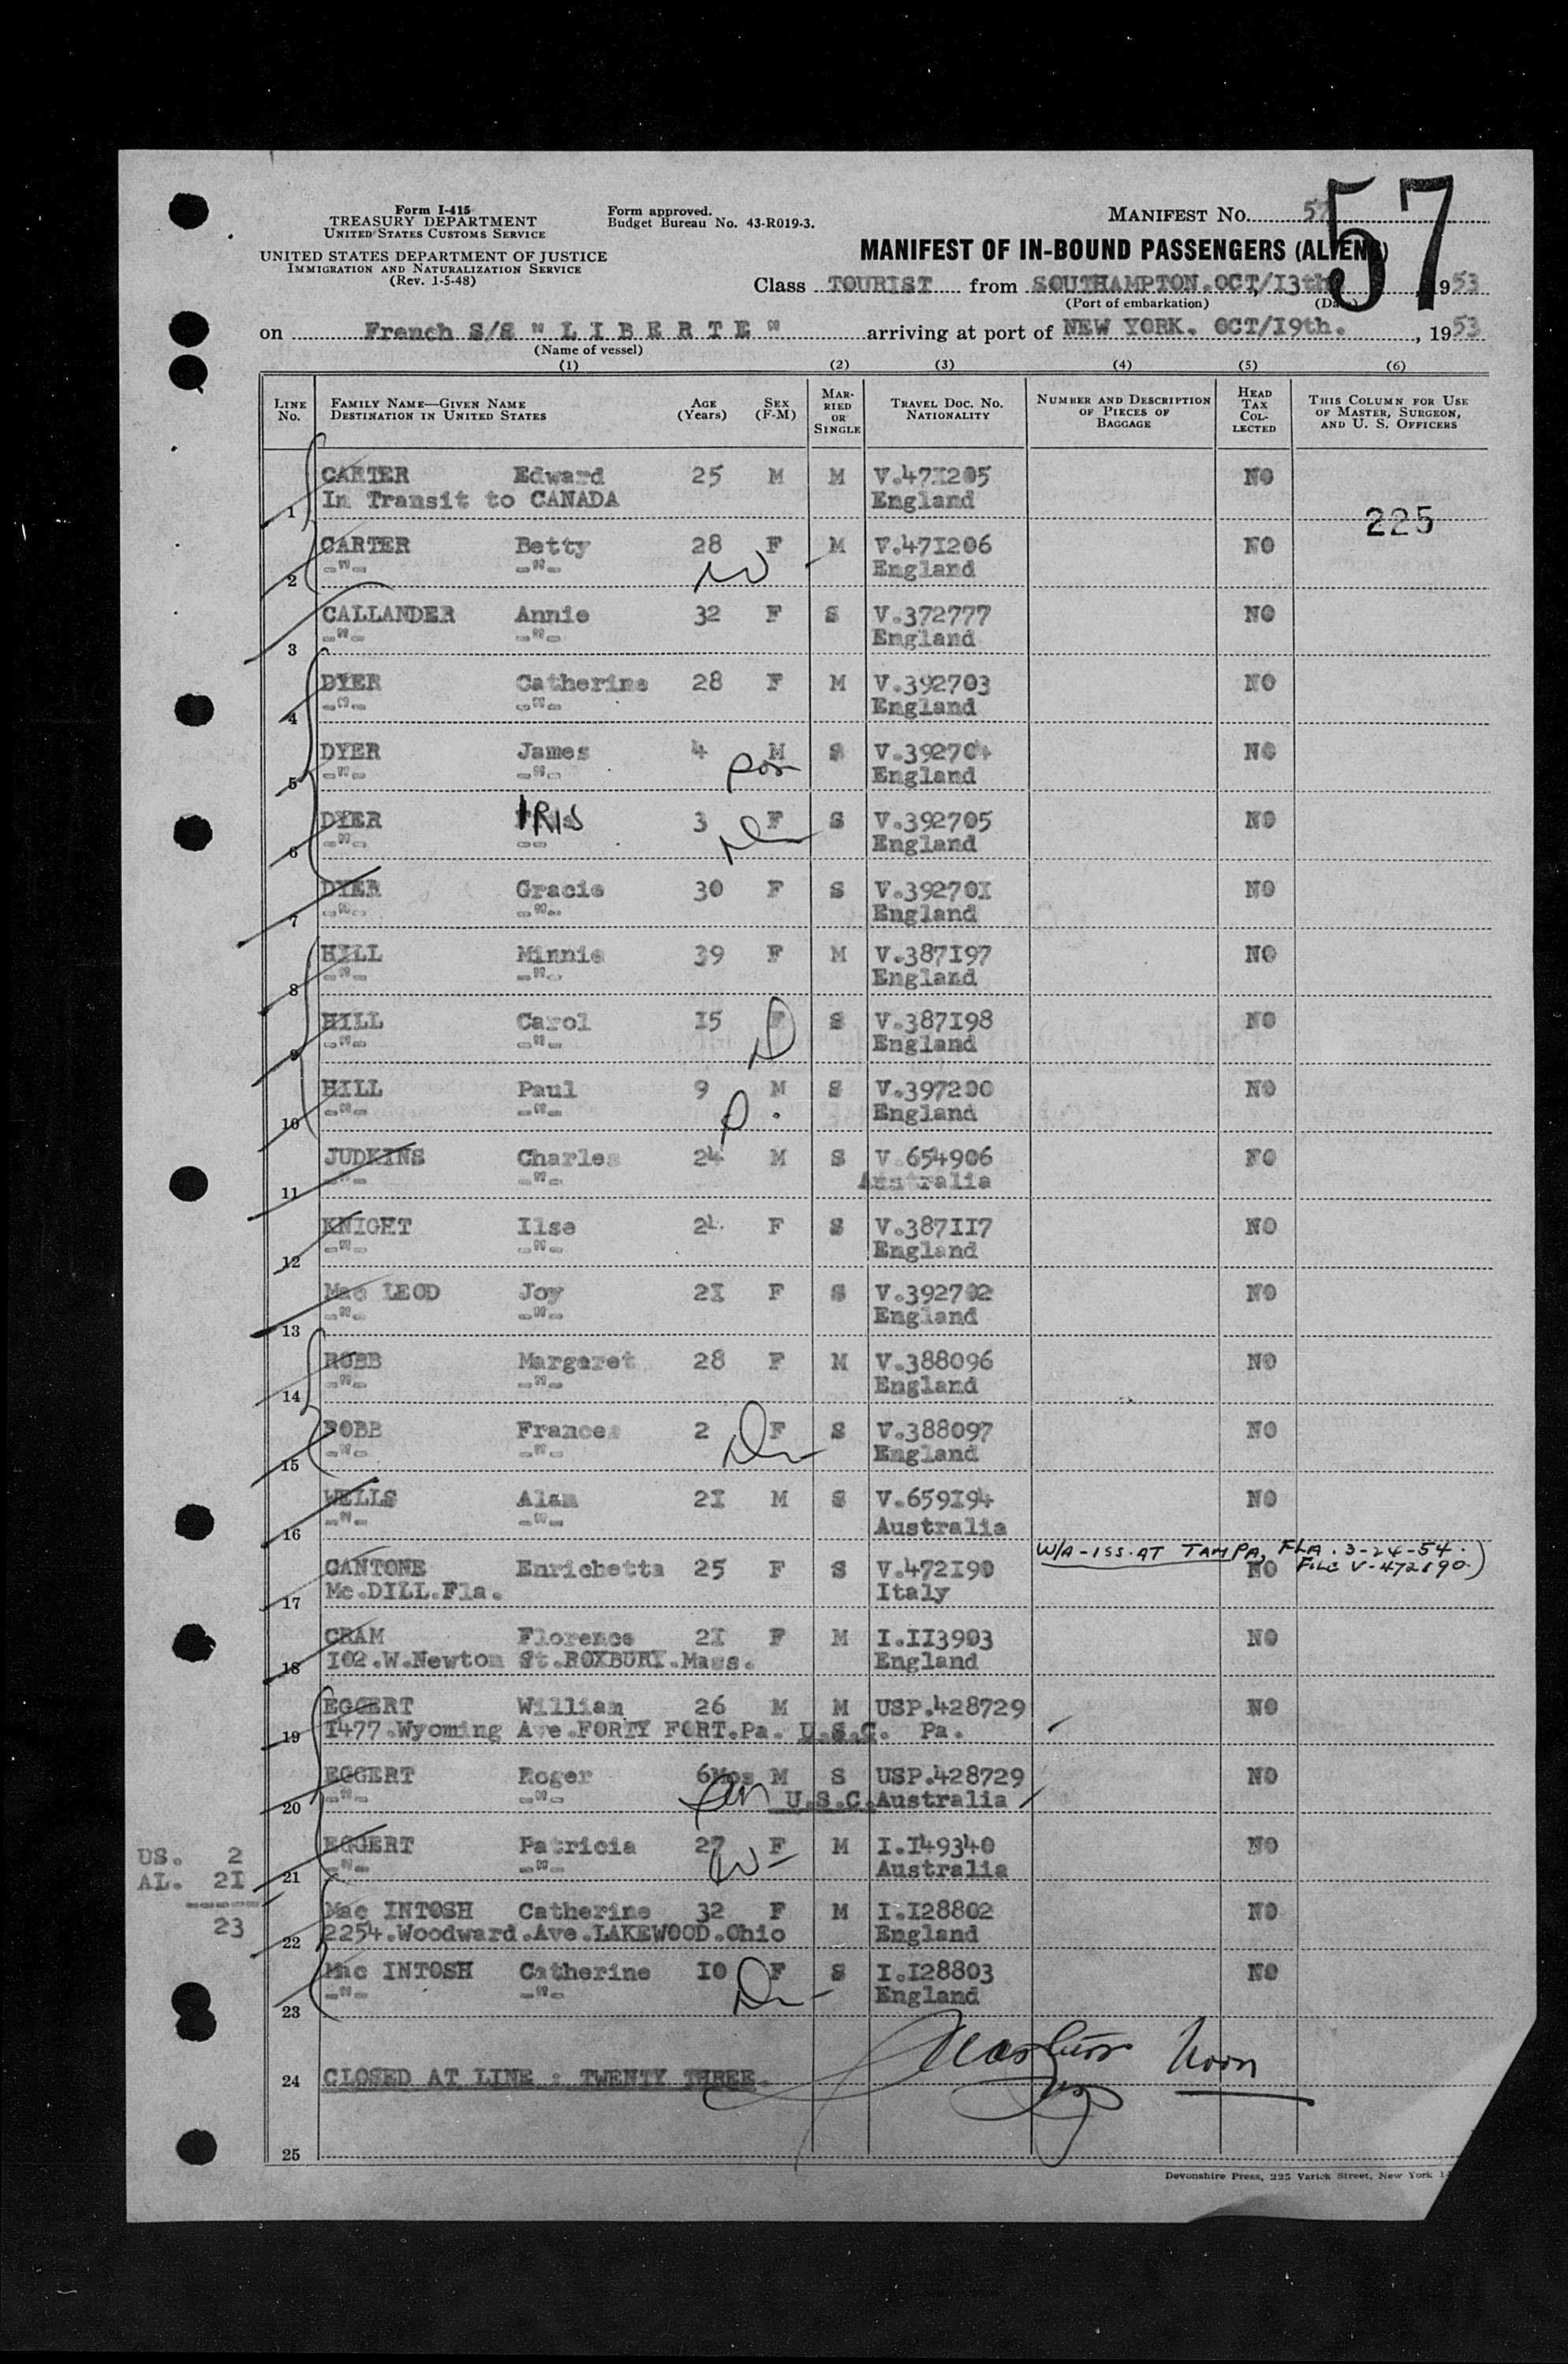 Form I-415
TREASURY DEPARTMENT
UNITED STATES CUSTOMS SERVICE
UNITED STATES DEPARTMENT OF JUSTICE
IMMIGRATION AND NATURALIZATION SERVICE
(Rev. 1-5-48)
Form approved.
Budget Bureau No. 43-R019-3.
MANIFEST NO. 57
57
MANIFEST OF IN-BOUND PASSENGERS (ALIENS)
Class TOURIST from SOUTHAMPTON.OCT/I3th, 1953
(Port of embarkation) (Date)
on French S/S " L I B E R T E " arriving at port of NEW YORK. OCT/I9th. , 1953
(Name of vessel)
(1) (2) (3) (4) (5) (6)
LINE No. FAMILY NAME—GIVEN NAME DESTINATION IN UNITED STATES AGE (Years) SEX (F-M) MARRIED OR SINGLE TRAVEL DOC. NO. NATIONALITY NUMBER AND DESCRIPTION OF PIECES OF BAGGAGE HEAD TAX COLLECTED THIS COLUMN FOR USE OF MASTER, SURGEON, AND U. S. OFFICERS
CARTER Edward 25 M M V.47I205 NO
1 In Transit to CANADA England
225
CARTER Betty 28 F M V.47I206 NO
2 -"- -"- England
CALLANDER Annie 32 F S V.372777 NO
3 -"- -"- England
DYER Catherine 28 F M V.392703 NO
4 -"- -"- England
DYER James 4 M S V.392704 NO
5 -"- -"- England
DYER IRIS 3 F S V.392705 NO
6 -"- -- England
DYER Gracie 30 F S V.39270I NO
7 -"- -"- England
HILL Minnie 39 F M V.387I97 NO
8 -"- -"- England
HILL Carol I5 F S V.387I98 NO
9 -"- -"- England
HILL Paul 9 M S V.397200 NO
10 -"- -"- England
JUDKINS Charles 24 M S V.654906 FO
11 -"- -"- Australia
KNIGHT Ilse 24 F S V.387II7 NO
12 -"- -"- England
Mac LEOD Joy 2I F S V.392702 NO
13 -"- -"- England
ROBB Margaret 28 F M V.388096 NO
14 -"- -"- England
ROBB Frances 2 F S V.388097 NO
15 -"- -"- England
WELLS Alan 2I M S V.659I94 NO
16 -"- -"- Australia
W/A-ISS.AT TAMPA, FLA. 3-24-54.
FILE V-472190.)
CANTONE Enrichetta 25 F S V.472I90 NO
17 Mc.DILL.Fla. Italy
CRAM Florence 2I F M I.II3903 NO
18 I02.W.Newton St.ROXBURY.Mass. England
EGGERT William 26 M M USP.428729 NO
19 I477.Wyoming Ave.FORTY FORT.Pa. U.S.C. Pa.
EGGERT Roger 6Mos M S USP.428729 NO
20 -"- -"- U.S.C. Australia
EGGERT Patricia 27 F M I.I49340 NO
21 -"- -"- Australia
US. 2
AL. 2I
-----
23
Mac INTOSH Catherine 32 F M I.I28802 NO
22 2254.Woodward.Ave.LAKEWOOD.Ohio England
Mac INTOSH Catherine I0 F S I.I28803 NO
23 -"- -"- England
24 CLOSED AT LINE : TWENTY THREE.
25
Devonshire Press, 225 Varick Street, New York